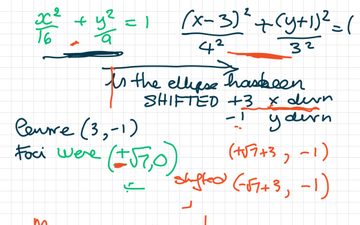 x²/16 + y²/9 = 1    (x-3)²/4² + (y+1)²/3² = 1
the ellipse has been
SHIFTED +3 x dirn
-1 y dirn
Centre (3, -1)
Foci were (±√7, 0)    (+√7+3, -1)
shifted (-√7+3, -1)